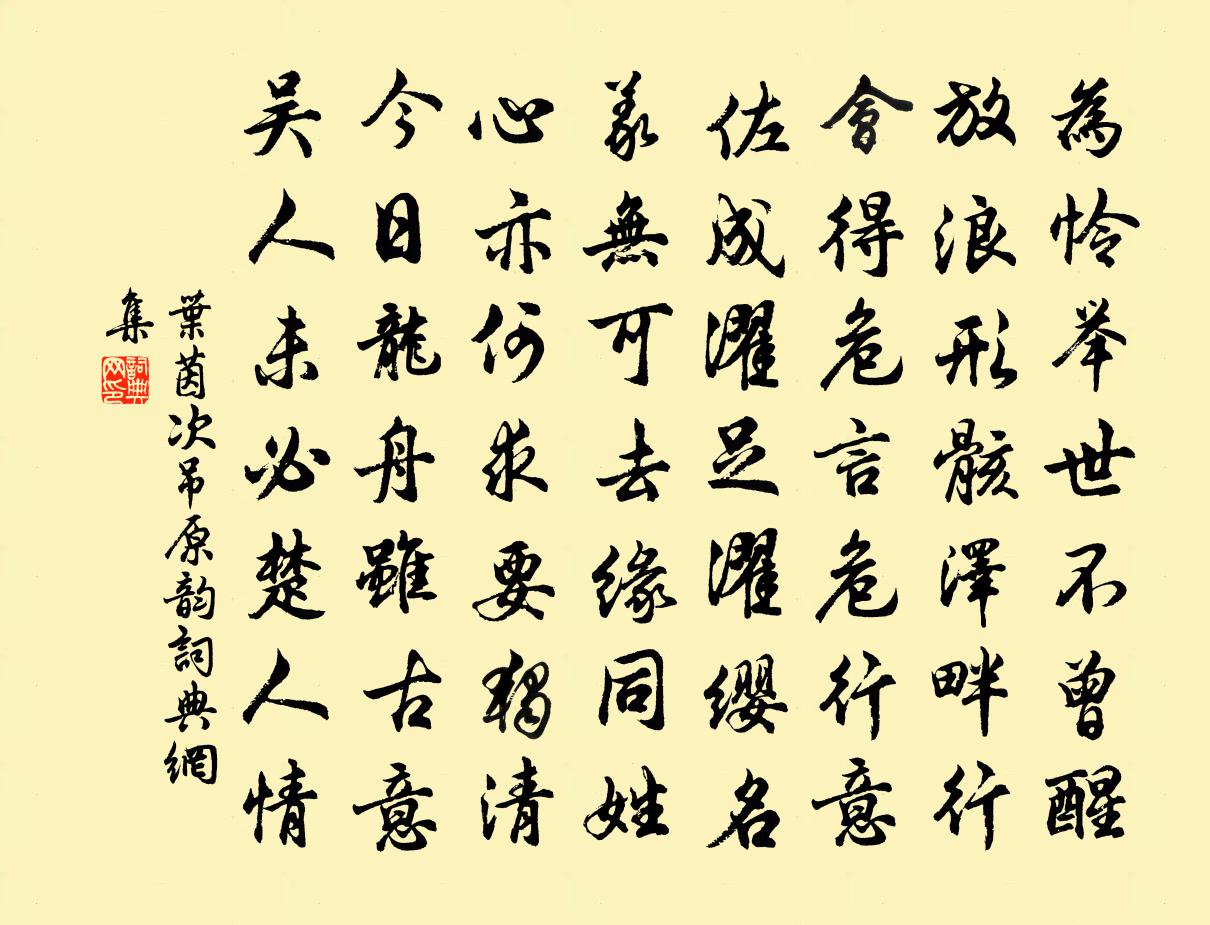 為怜举世不曾醒
放浪形骸澤畔行
會得危言危行意
佐成濯足濯缨名
義無可去缘同姓
心亦何求要獨清
今日龍舟雖古意
吴人未必楚人情
葉茵次吊原韵詞典網
集
詞典
网印